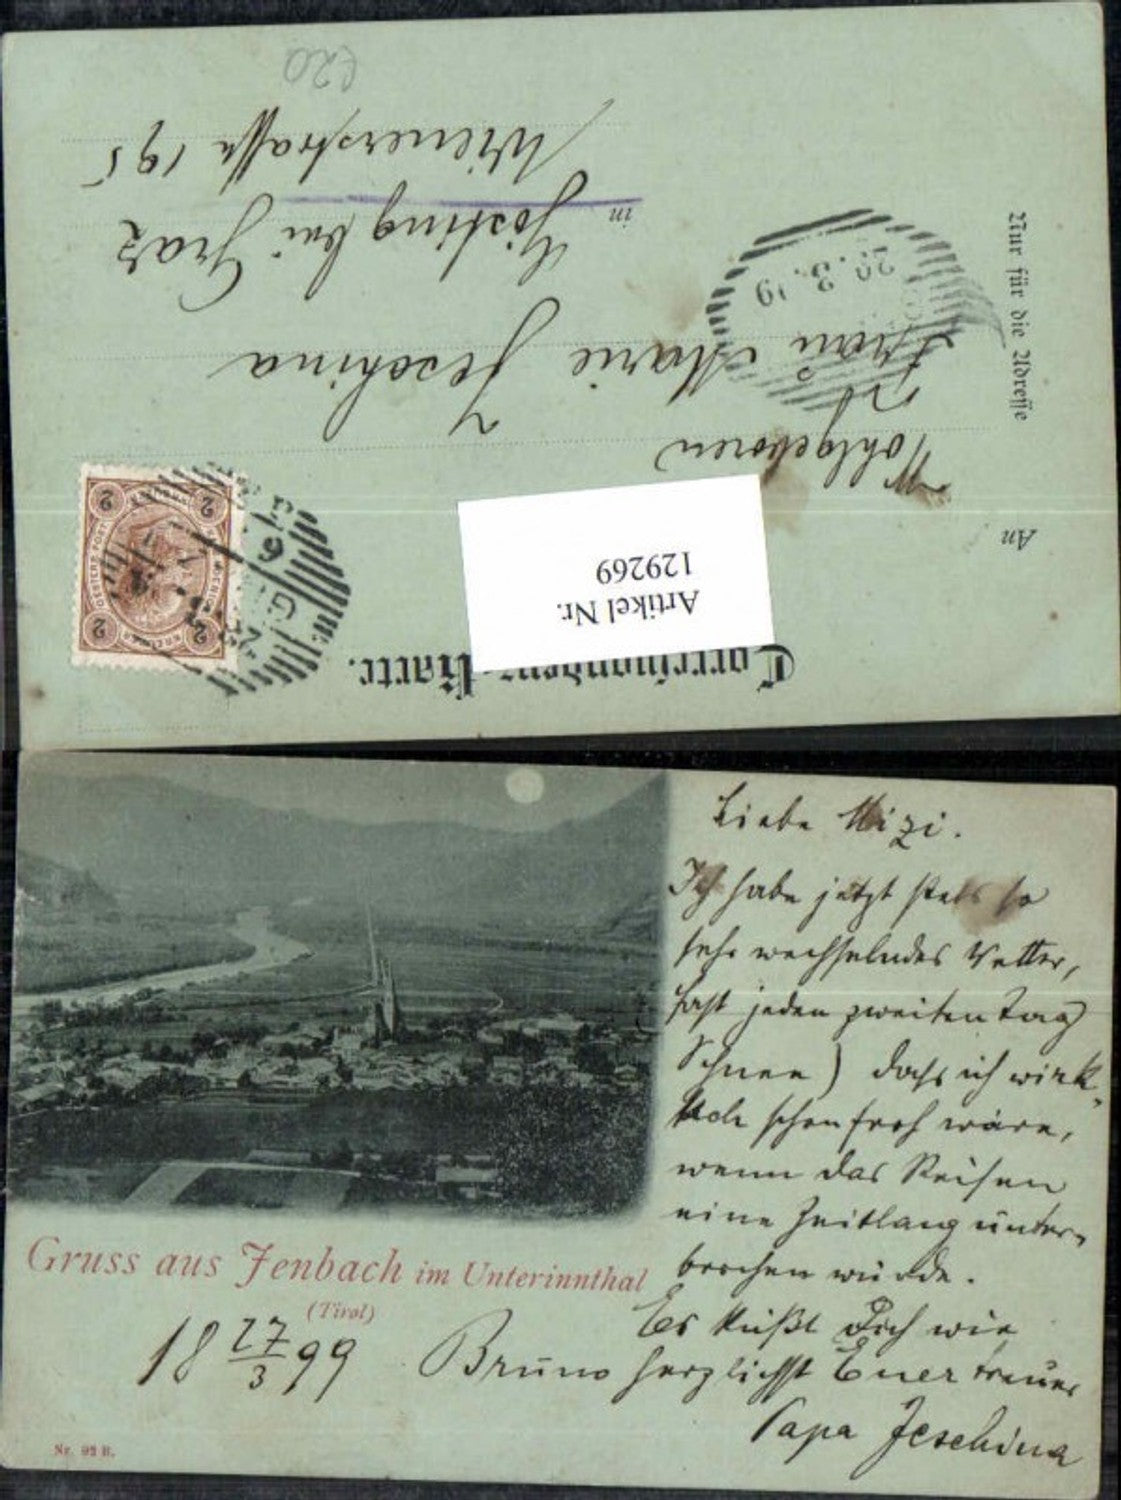 Correspondenz-Karte.
Artikel Nr.
129269
An
Wohlgeboren
Frau Marie Jeschina
in Gösting bei Graz
Wienerstrasse 195
Nur für die Adresse
2 2
2 2
Liebe Mizi.
Ich habe jetzt stets so
sehr wechselndes Wetter,
fast jeden zweiten Tag
Schnee) dass ich wirk-
lich schon froh wäre,
wenn das Reisen
eine Zeitlang unter-
brochen würde.
Es küßt Dich wie
Bruno herzlichst Euer treuer
Papa Jeschina
Gruss aus Jenbach im Unterinnthal
(Tirol)
18 27/3 99
Nr. 92 B.